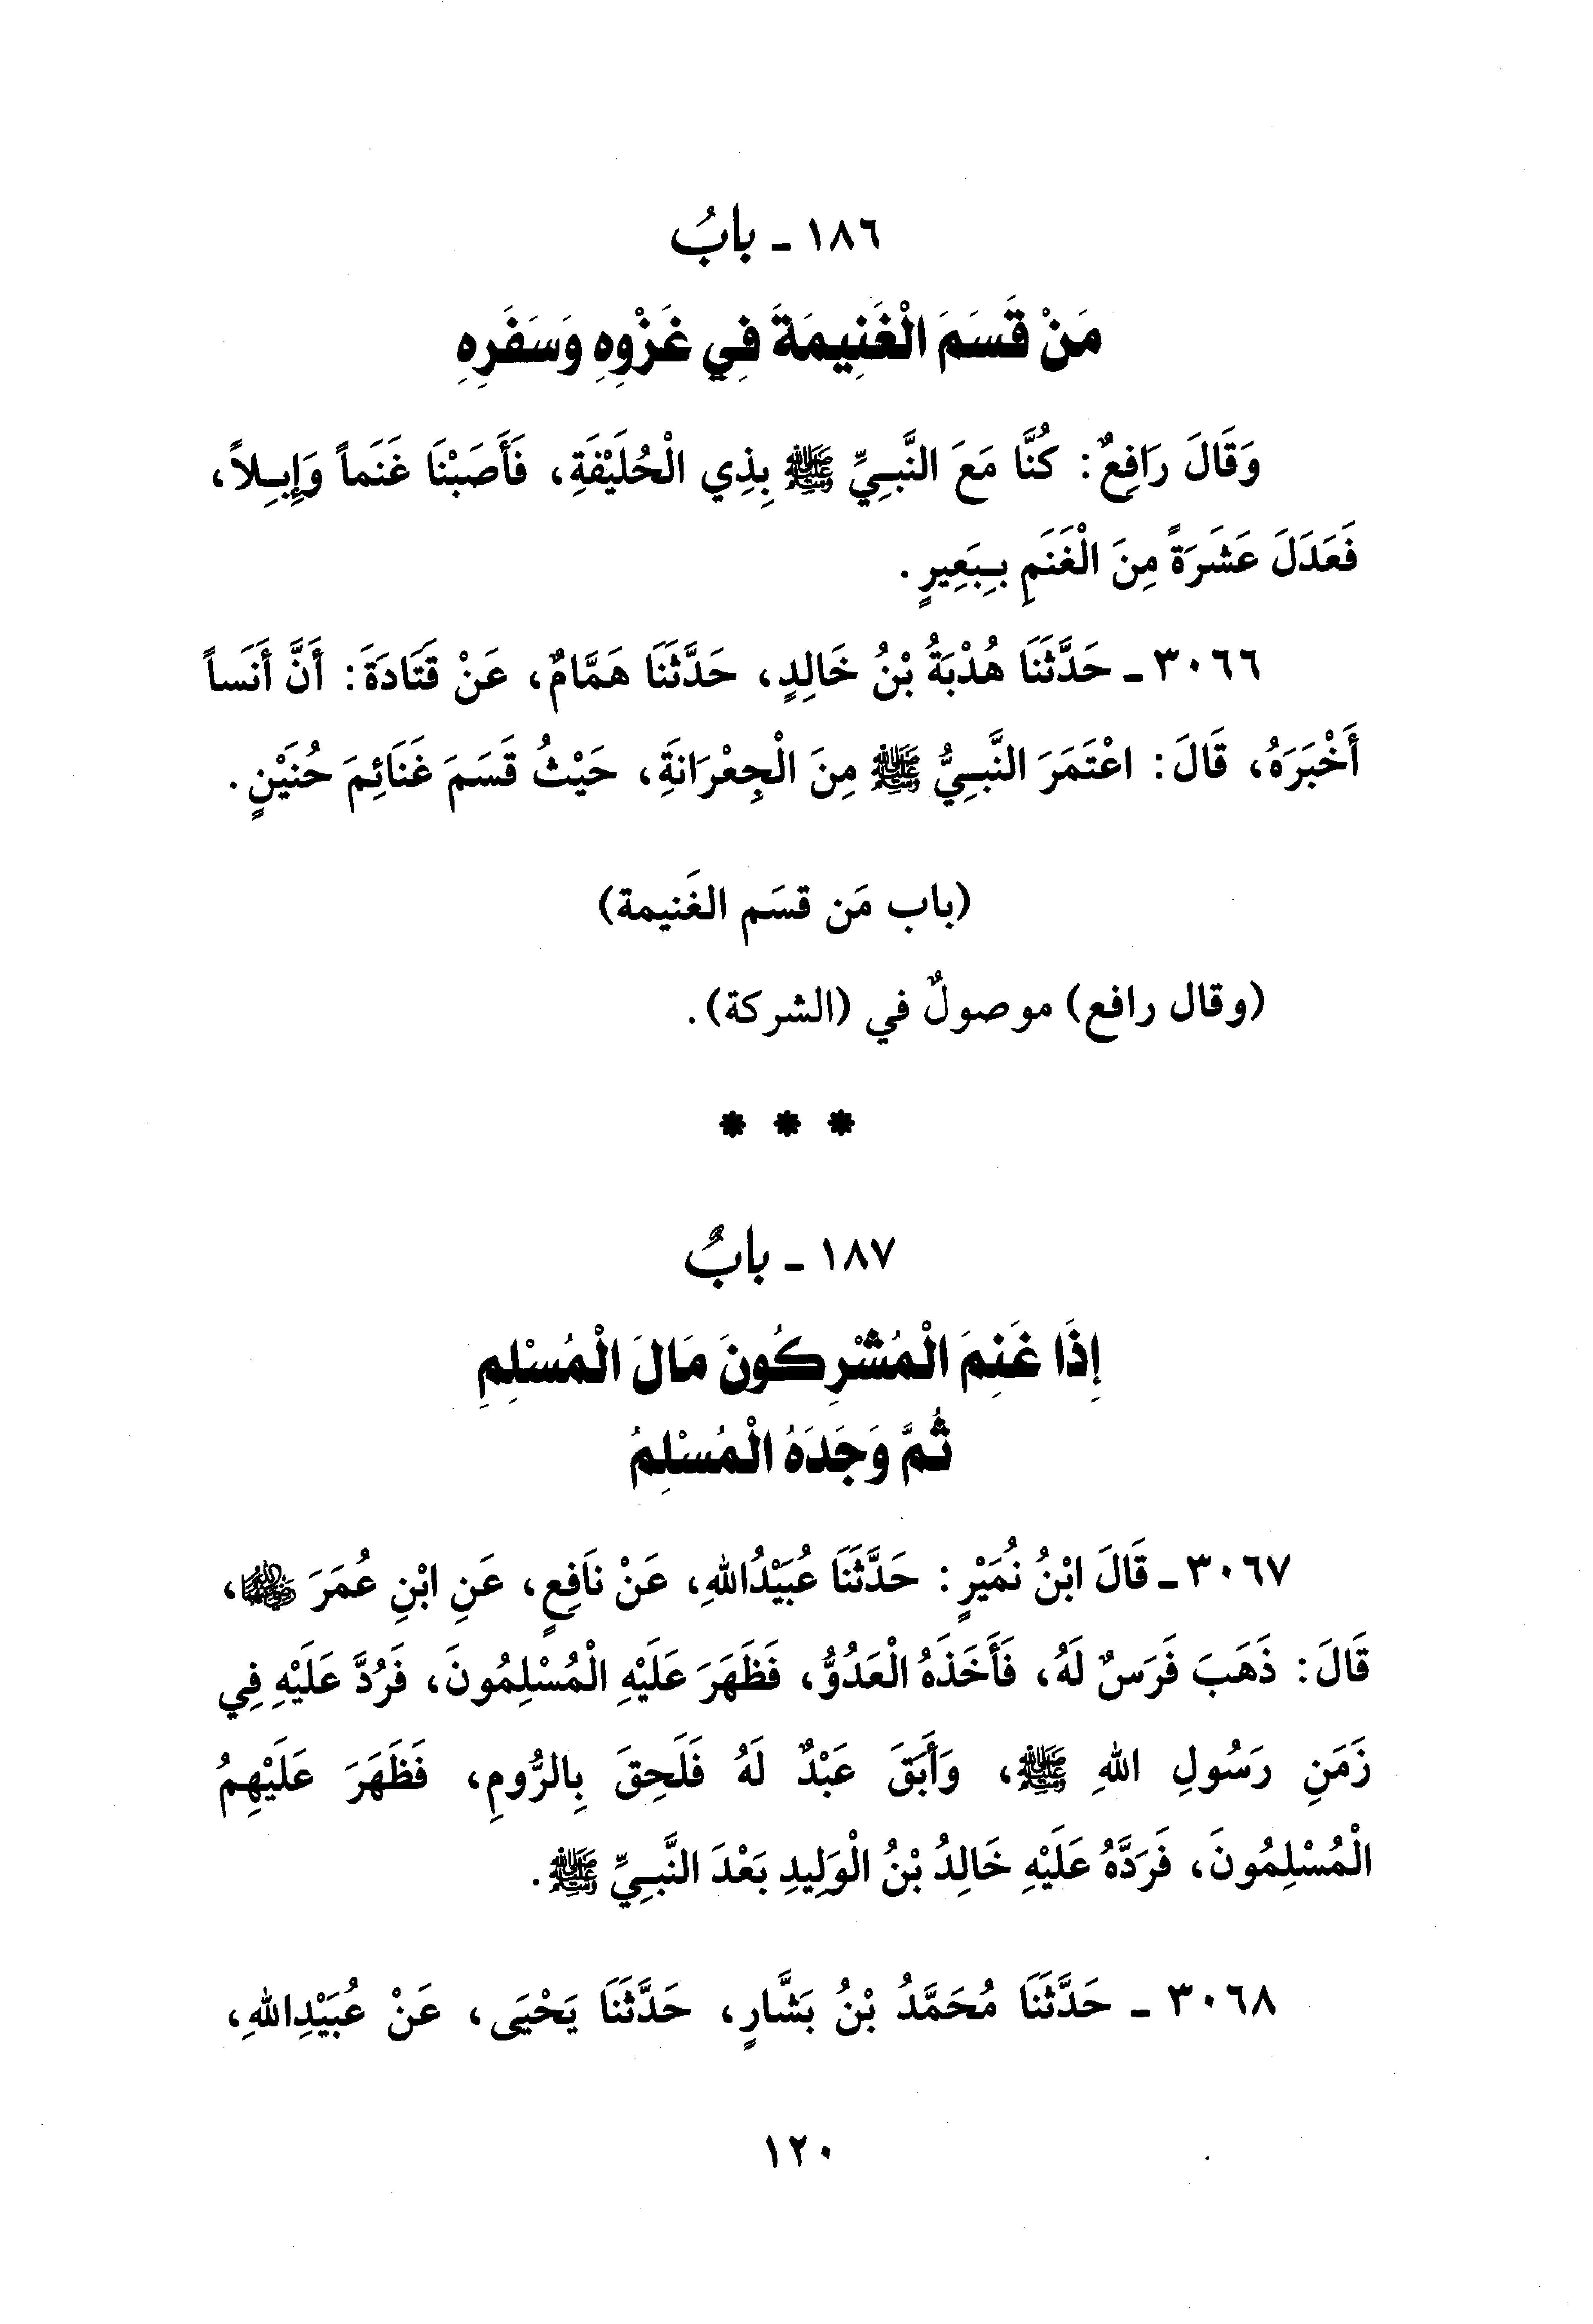 ١٨٦ - بابُ
مَنْ قَسَمَ الْغَنِيمَةَ فِي غَزْوِهِ وَسَفَرِهِ
وَقَالَ رَافِعٌ: كُنَّا مَعَ النَّبِيِّ ﷺ بِذِي الْحُلَيْفَةِ، فَأَصَبْنَا غَنَماً وَإِبِلاً،
فَعَدَلَ عَشَرَةً مِنَ الْغَنَمِ بِبَعِيرٍ.
٣٠٦٦ - حَدَّثَنَا هُدْبَةُ بْنُ خَالِدٍ، حَدَّثَنَا هَمَّامٌ، عَنْ قَتَادَةَ: أَنَّ أَنَساً
أَخْبَرَهُ، قَالَ: اعْتَمَرَ النَّبِيُّ ﷺ مِنَ الْجِعْرَانَةِ، حَيْثُ قَسَمَ غَنَائِمَ حُنَيْنٍ.
(باب مَن قسَم الغَنيمة)
(وقال رافع) موصولٌ في (الشركة).
* * *
١٨٧ - بابٌ
إِذَا غَنِمَ الْمُشْرِكُونَ مَالَ الْمُسْلِمِ
ثُمَّ وَجَدَهُ الْمُسْلِمُ
٣٠٦٧ - قَالَ ابْنُ نُمَيْرٍ: حَدَّثَنَا عُبَيْدُاللهِ، عَنْ نَافِعٍ، عَنِ ابْنِ عُمَرَ رضي الله عنهما،
قَالَ: ذَهَبَ فَرَسٌ لَهُ، فَأَخَذَهُ الْعَدُوُّ، فَظَهَرَ عَلَيْهِ الْمُسْلِمُونَ، فَرُدَّ عَلَيْهِ فِي
زَمَنِ رَسُولِ اللهِ ﷺ، وَأَبَقَ عَبْدٌ لَهُ فَلَحِقَ بِالرُّومِ، فَظَهَرَ عَلَيْهِمُ
الْمُسْلِمُونَ، فَرَدَّهُ عَلَيْهِ خَالِدُ بْنُ الْوَلِيدِ بَعْدَ النَّبِيِّ ﷺ.
٣٠٦٨ - حَدَّثَنَا مُحَمَّدُ بْنُ بَشَّارٍ، حَدَّثَنَا يَحْيَى، عَنْ عُبَيْدِاللهِ،
١٢٠